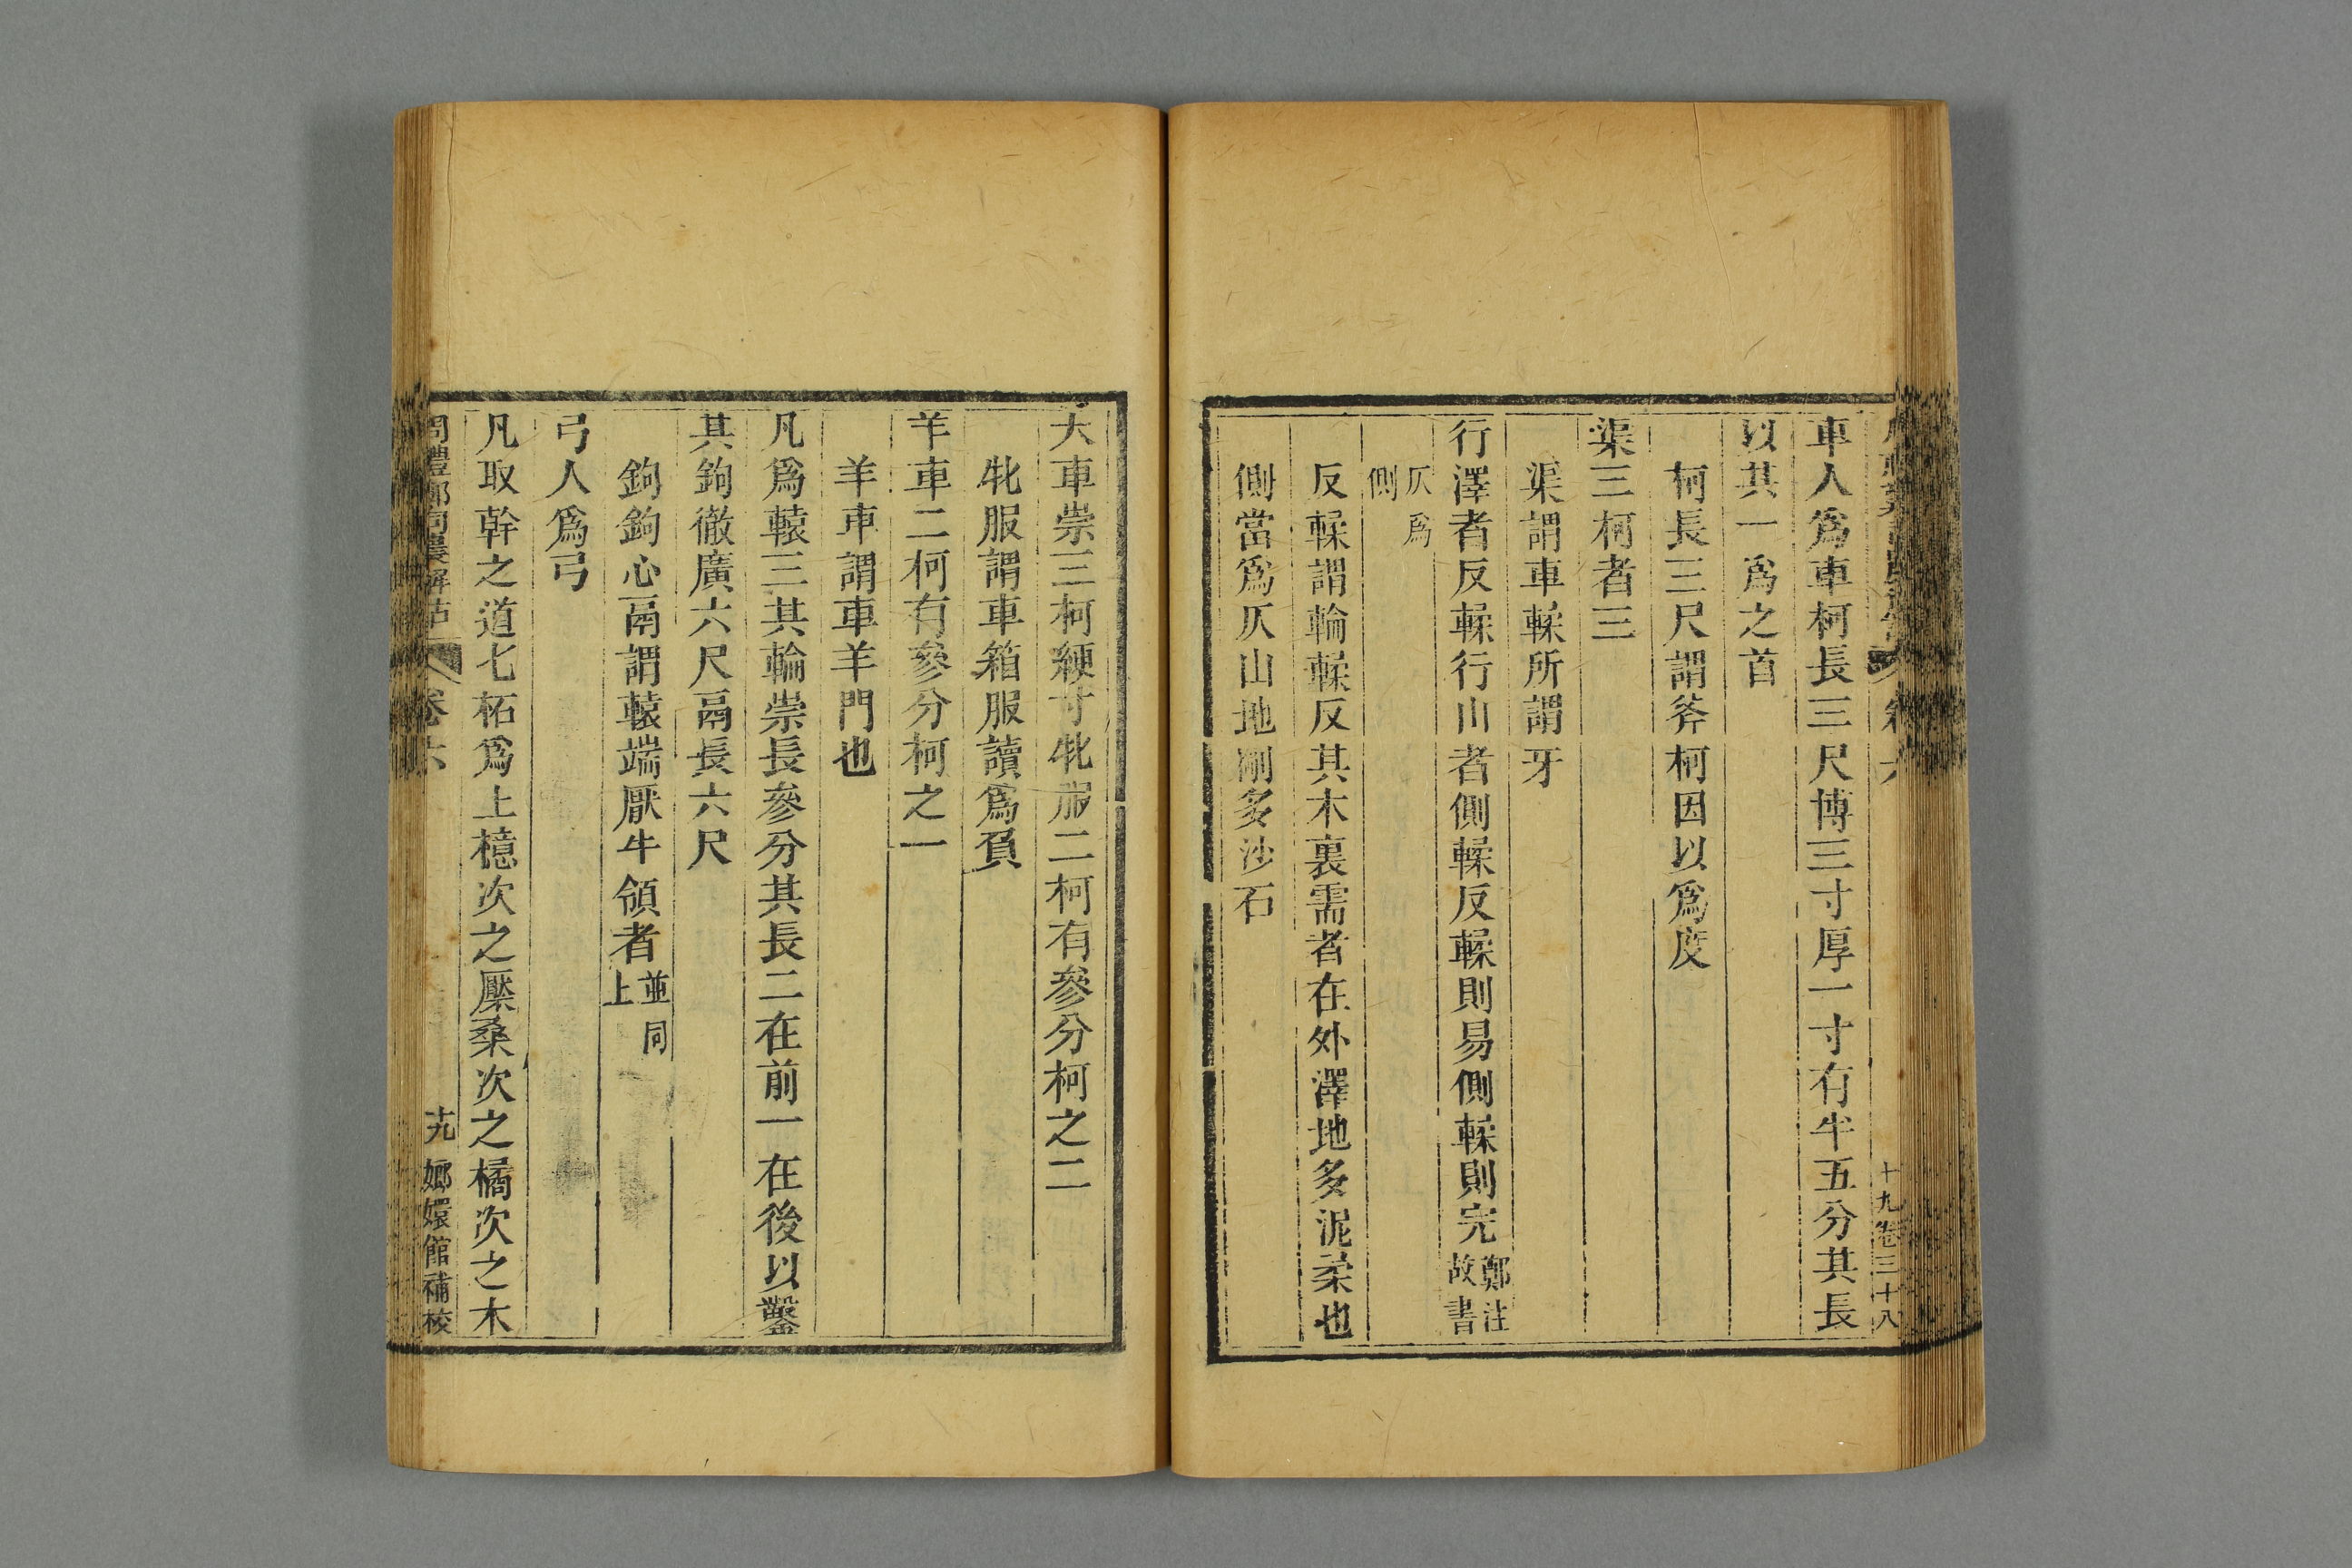 十九卷三十八
車人為車柯長三尺博三寸厚一寸有半五分其長
以其一為之首
柯長三尺謂斧柯因以為度
渠三柯者三
渠謂車輮所謂牙
行澤者反輮行山者側輮反輮則易側輮則完鄭注故書
仄為側
反輮謂輪輮反其木裏需者在外澤地多泥柔也
側當為仄山地剛多沙石
大車崇三柯綆寸牝服二柯有參分柯之二
牝服謂車箱服讀為負
羊車二柯有參分柯之一
羊車謂車羊門也
凡為轅三其輪崇長參分其長二在前一在後以鑿
其鉤徹廣六尺鬲長六尺
鉤鉤心鬲謂轅端厭牛領者並同上
弓人為弓
凡取幹之道七柘為上檍次之檿桑次之橘次之木
周禮鄭司農解詁 卷六 十九 嫏嬛館補校